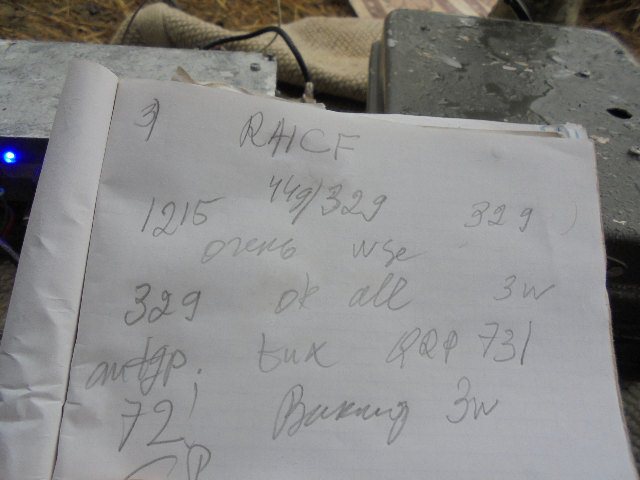 3) RA1CF
1215 449/329 329
очень wse
329 ok all 3w
tnx QRP 73!
72! Виктор 3w